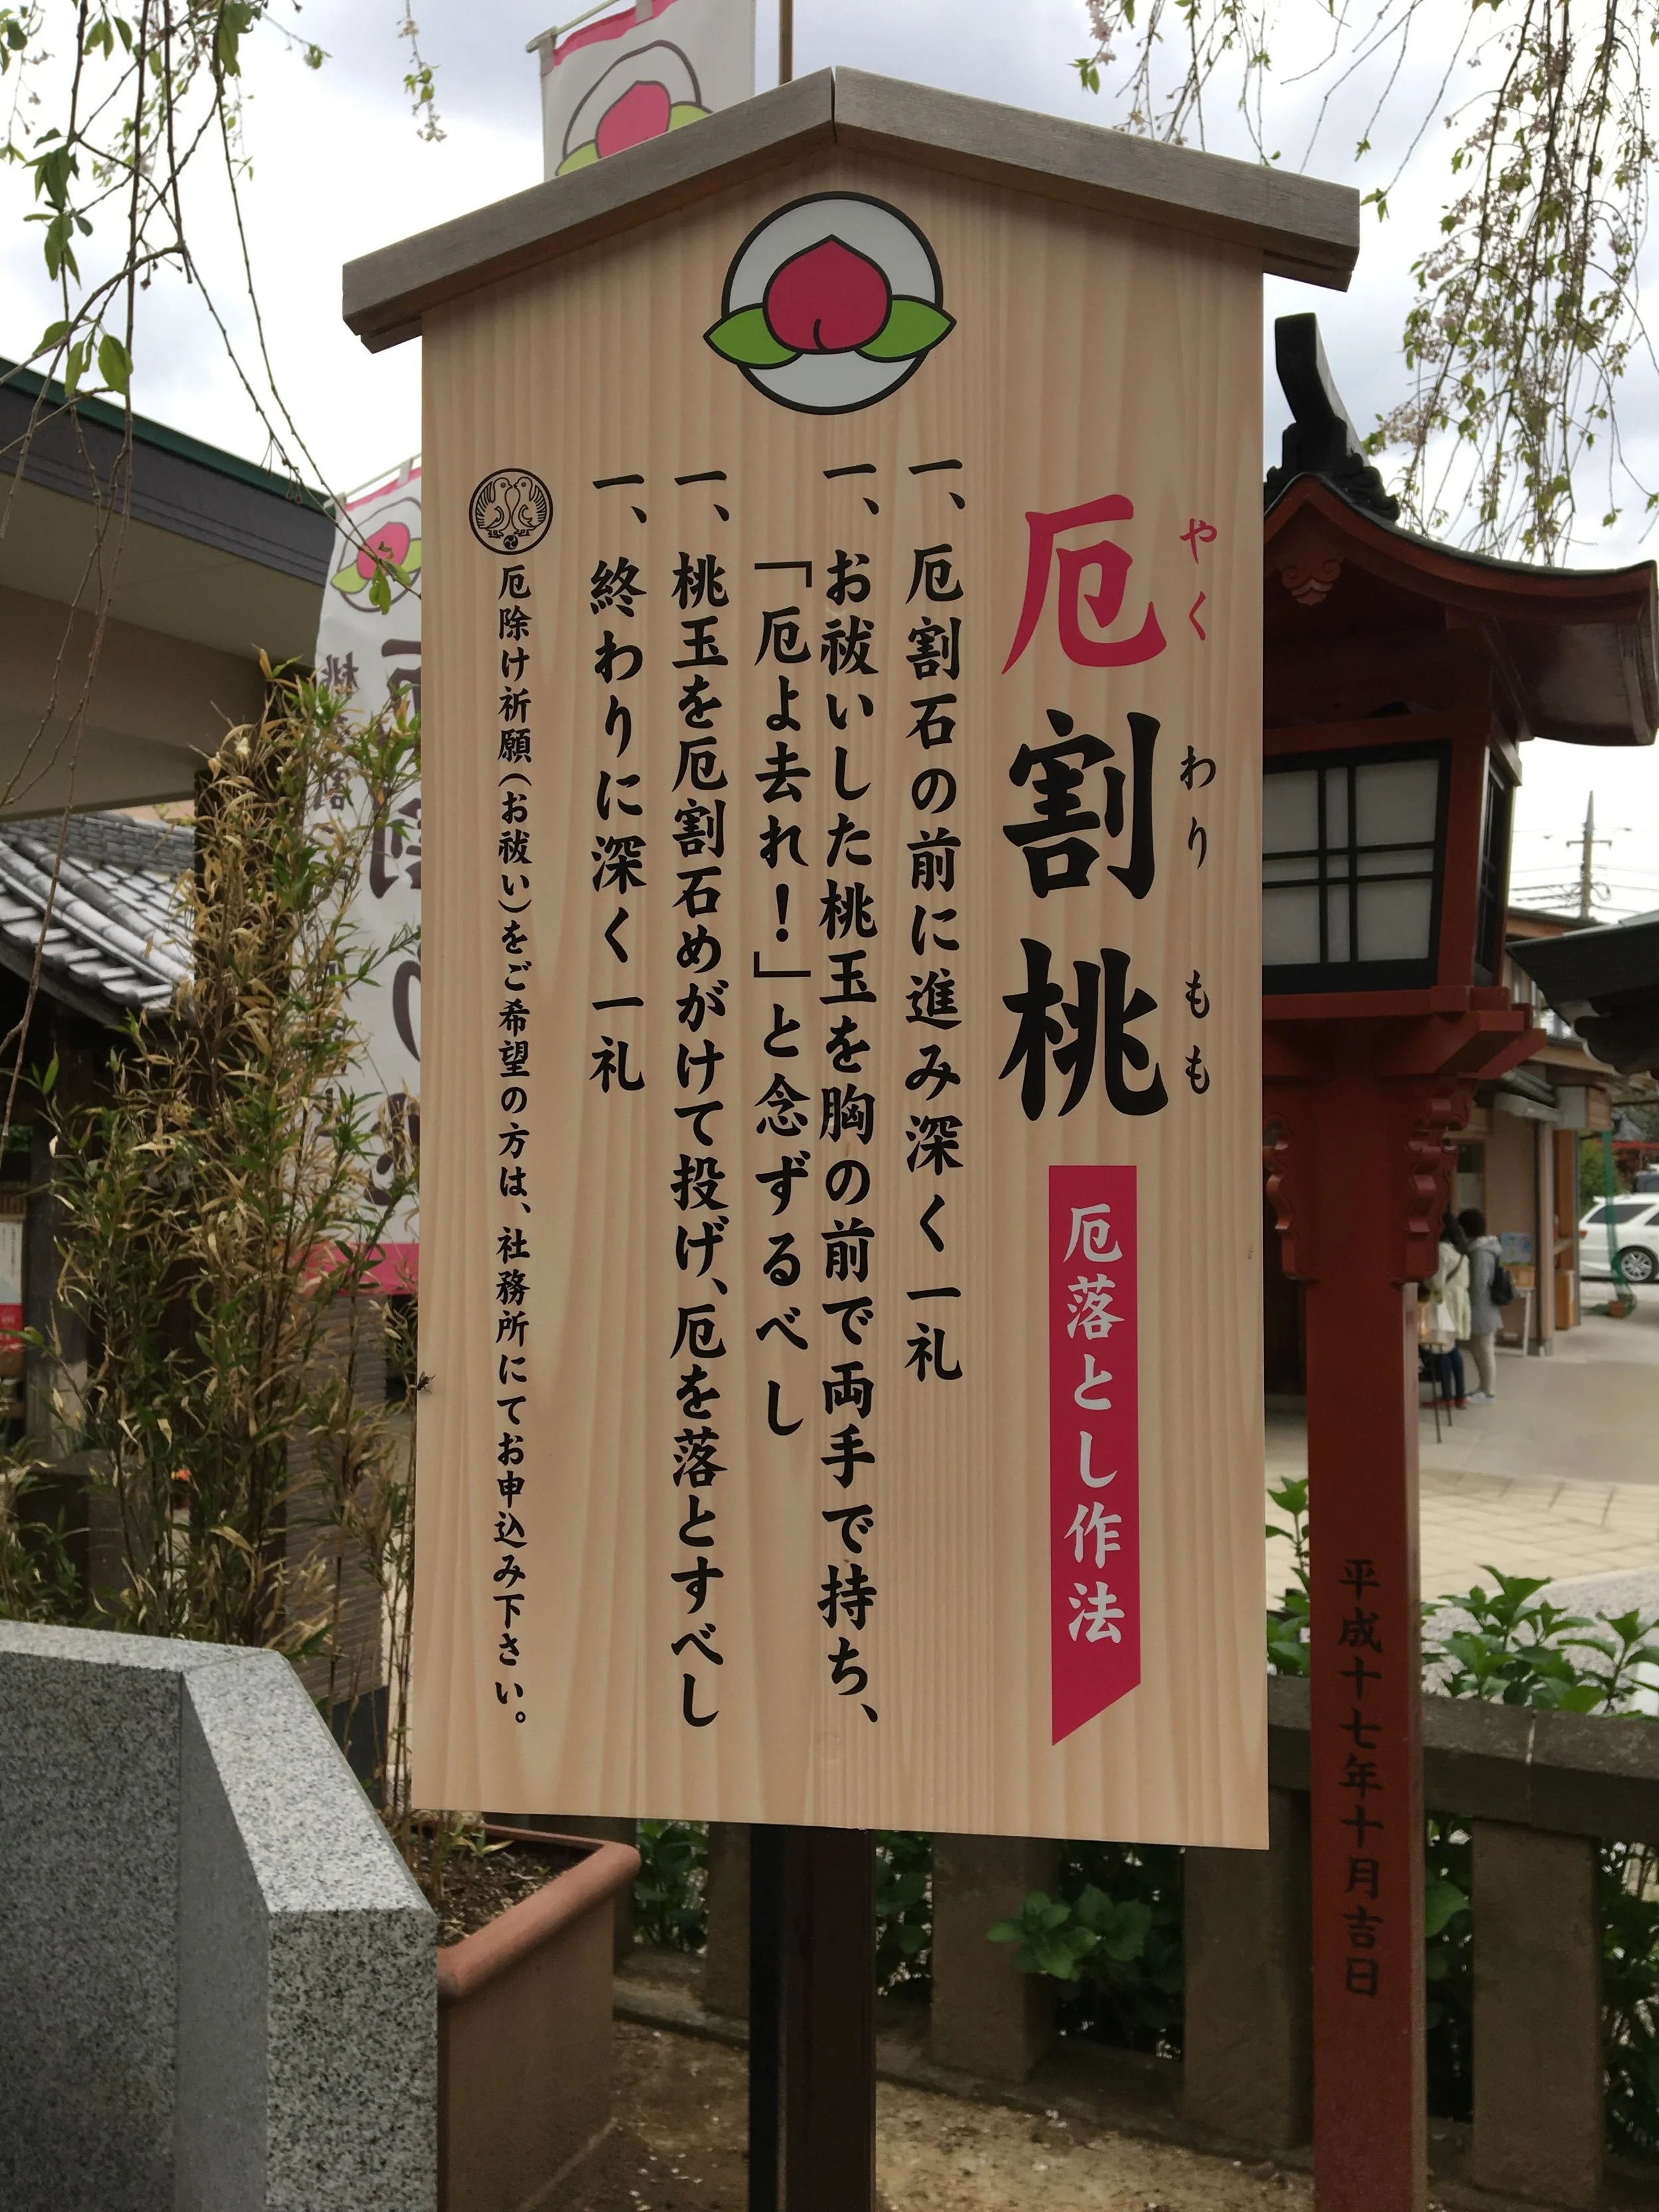 厄割桃
やく わり もも
厄落とし作法
一、厄割石の前に進み深く一礼
一、お祓いした桃玉を胸の前で両手で持ち、
「厄よ去れ！」と念ずるべし
一、桃玉を厄割石めがけて投げ、厄を落とすべし
一、終わりに深く一礼
厄除け祈願(お祓い)をご希望の方は、社務所にてお申込み下さい。
平成十七年十月吉日